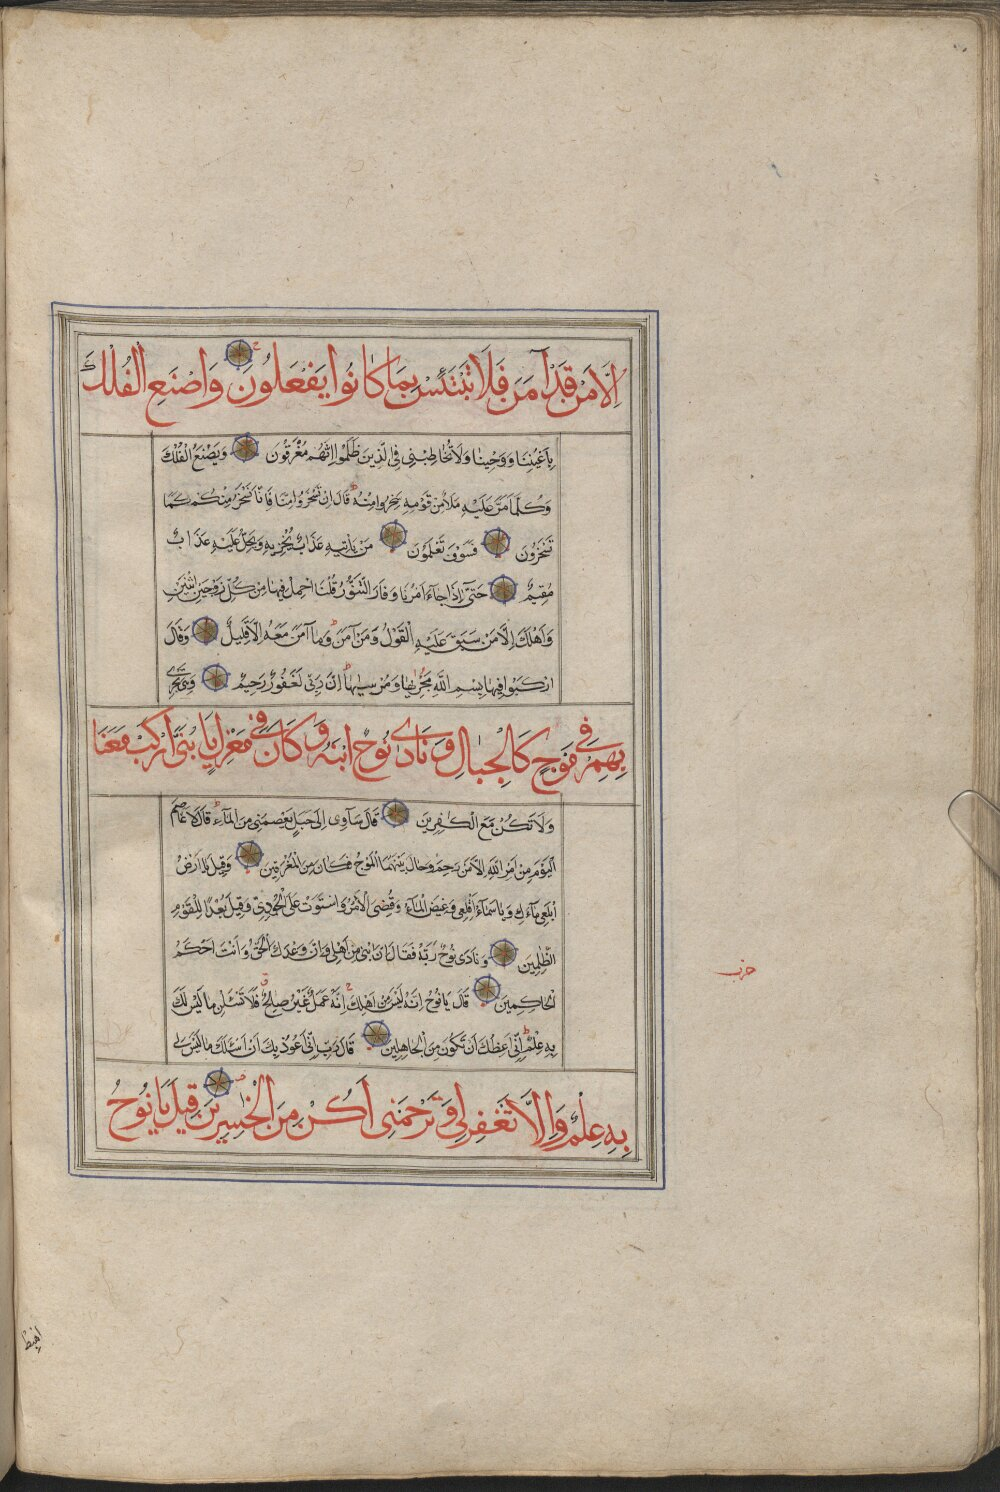 اِلَّا مَنْ قَدْ آمَنَ فَلَا تَبْتَئِسْ بِمَا كَانُوا يَفْعَلُونَ وَاصْنَعِ الْفُلْكَ
بِاَعْيُنِنَا وَوَحْيِنَا وَلَا تُخَاطِبْنِى فِى الَّذِينَ ظَلَمُوا اِنَّهُمْ مُغْرَقُونَ وَيَصْنَعُ الْفُلْكَ
وَكُلَّمَا مَرَّ عَلَيْهِ مَلَأٌ مِنْ قَوْمِهِ سَخِرُوا مِنْهُ قَالَ اِنْ تَسْخَرُوا مِنَّا فَاِنَّا نَسْخَرُ مِنْكُمْ كَمَا
تَسْخَرُونَ فَسَوْفَ تَعْلَمُونَ مَنْ يَأْتِيهِ عَذَابٌ يُخْزِيهِ وَيَحِلُّ عَلَيْهِ عَذَابٌ
مُقِيمٌ حَتَّى اِذَا جَاءَ اَمْرُنَا وَفَارَ التَّنُّورُ قُلْنَا احْمِلْ فِيهَا مِنْ كُلٍّ زَوْجَيْنِ اثْنَيْنِ
وَاَهْلَكَ اِلَّا مَنْ سَبَقَ عَلَيْهِ الْقَوْلُ وَمَنْ آمَنَ وَمَا آمَنَ مَعَهُ اِلَّا قَلِيلٌ وَقَالَ
ارْكَبُوا فِيهَا بِسْمِ اللَّهِ مَجْرٰيهَا وَمُرْسٰيهَا اِنَّ رَبِّى لَغَفُورٌ رَحِيمٌ وَهِىَ تَجْرِى
بِهِمْ فِى مَوْجٍ كَالْجِبَالِ وَنَادٰى نُوحٌ ابْنَهُ وَكَانَ فِى مَعْزِلٍ يَا بُنَىَّ ارْكَبْ مَعَنَا
وَلَا تَكُنْ مَعَ الْكَافِرِينَ قَالَ سَآوِى اِلٰى جَبَلٍ يَعْصِمُنِى مِنَ الْمَاءِ قَالَ لَا عَاصِمَ
الْيَوْمَ مِنْ اَمْرِ اللَّهِ اِلَّا مَنْ رَحِمَ وَحَالَ بَيْنَهُمَا الْمَوْجُ فَكَانَ مِنَ الْمُغْرَقِينَ وَقِيلَ يَا اَرْضُ
ابْلَعِى مَاءَكِ وَيَا سَمَاءُ اَقْلِعِى وَغِيضَ الْمَاءُ وَقُضِىَ الْاَمْرُ وَاسْتَوَتْ عَلَى الْجُودِىِّ وَقِيلَ بُعْدًا لِلْقَوْمِ
الظّٰلِمِينَ وَنَادٰى نُوحٌ رَبَّهُ فَقَالَ رَبِّ اِنَّ ابْنِى مِنْ اَهْلِى وَاِنَّ وَعْدَكَ الْحَقُّ وَاَنْتَ اَحْكَمُ
الْحَاكِمِينَ قَالَ يَا نُوحُ اِنَّهُ لَيْسَ مِنْ اَهْلِكَ اِنَّهُ عَمَلٌ غَيْرُ صَالِحٍ فَلَا تَسْئَلْنِ مَا لَيْسَ لَكَ
بِهِ عِلْمٌ اِنِّى اَعِظُكَ اَنْ تَكُونَ مِنَ الْجَاهِلِينَ قَالَ رَبِّ اِنِّى اَعُوذُ بِكَ اَنْ اَسْئَلَكَ مَا لَيْسَ لِى
بِهِ عِلْمٌ وَاِلَّا تَغْفِرْ لِى وَتَرْحَمْنِى اَكُنْ مِنَ الْخٰسِرِينَ قِيلَ يَا نُوحُ
حزب
اهبط